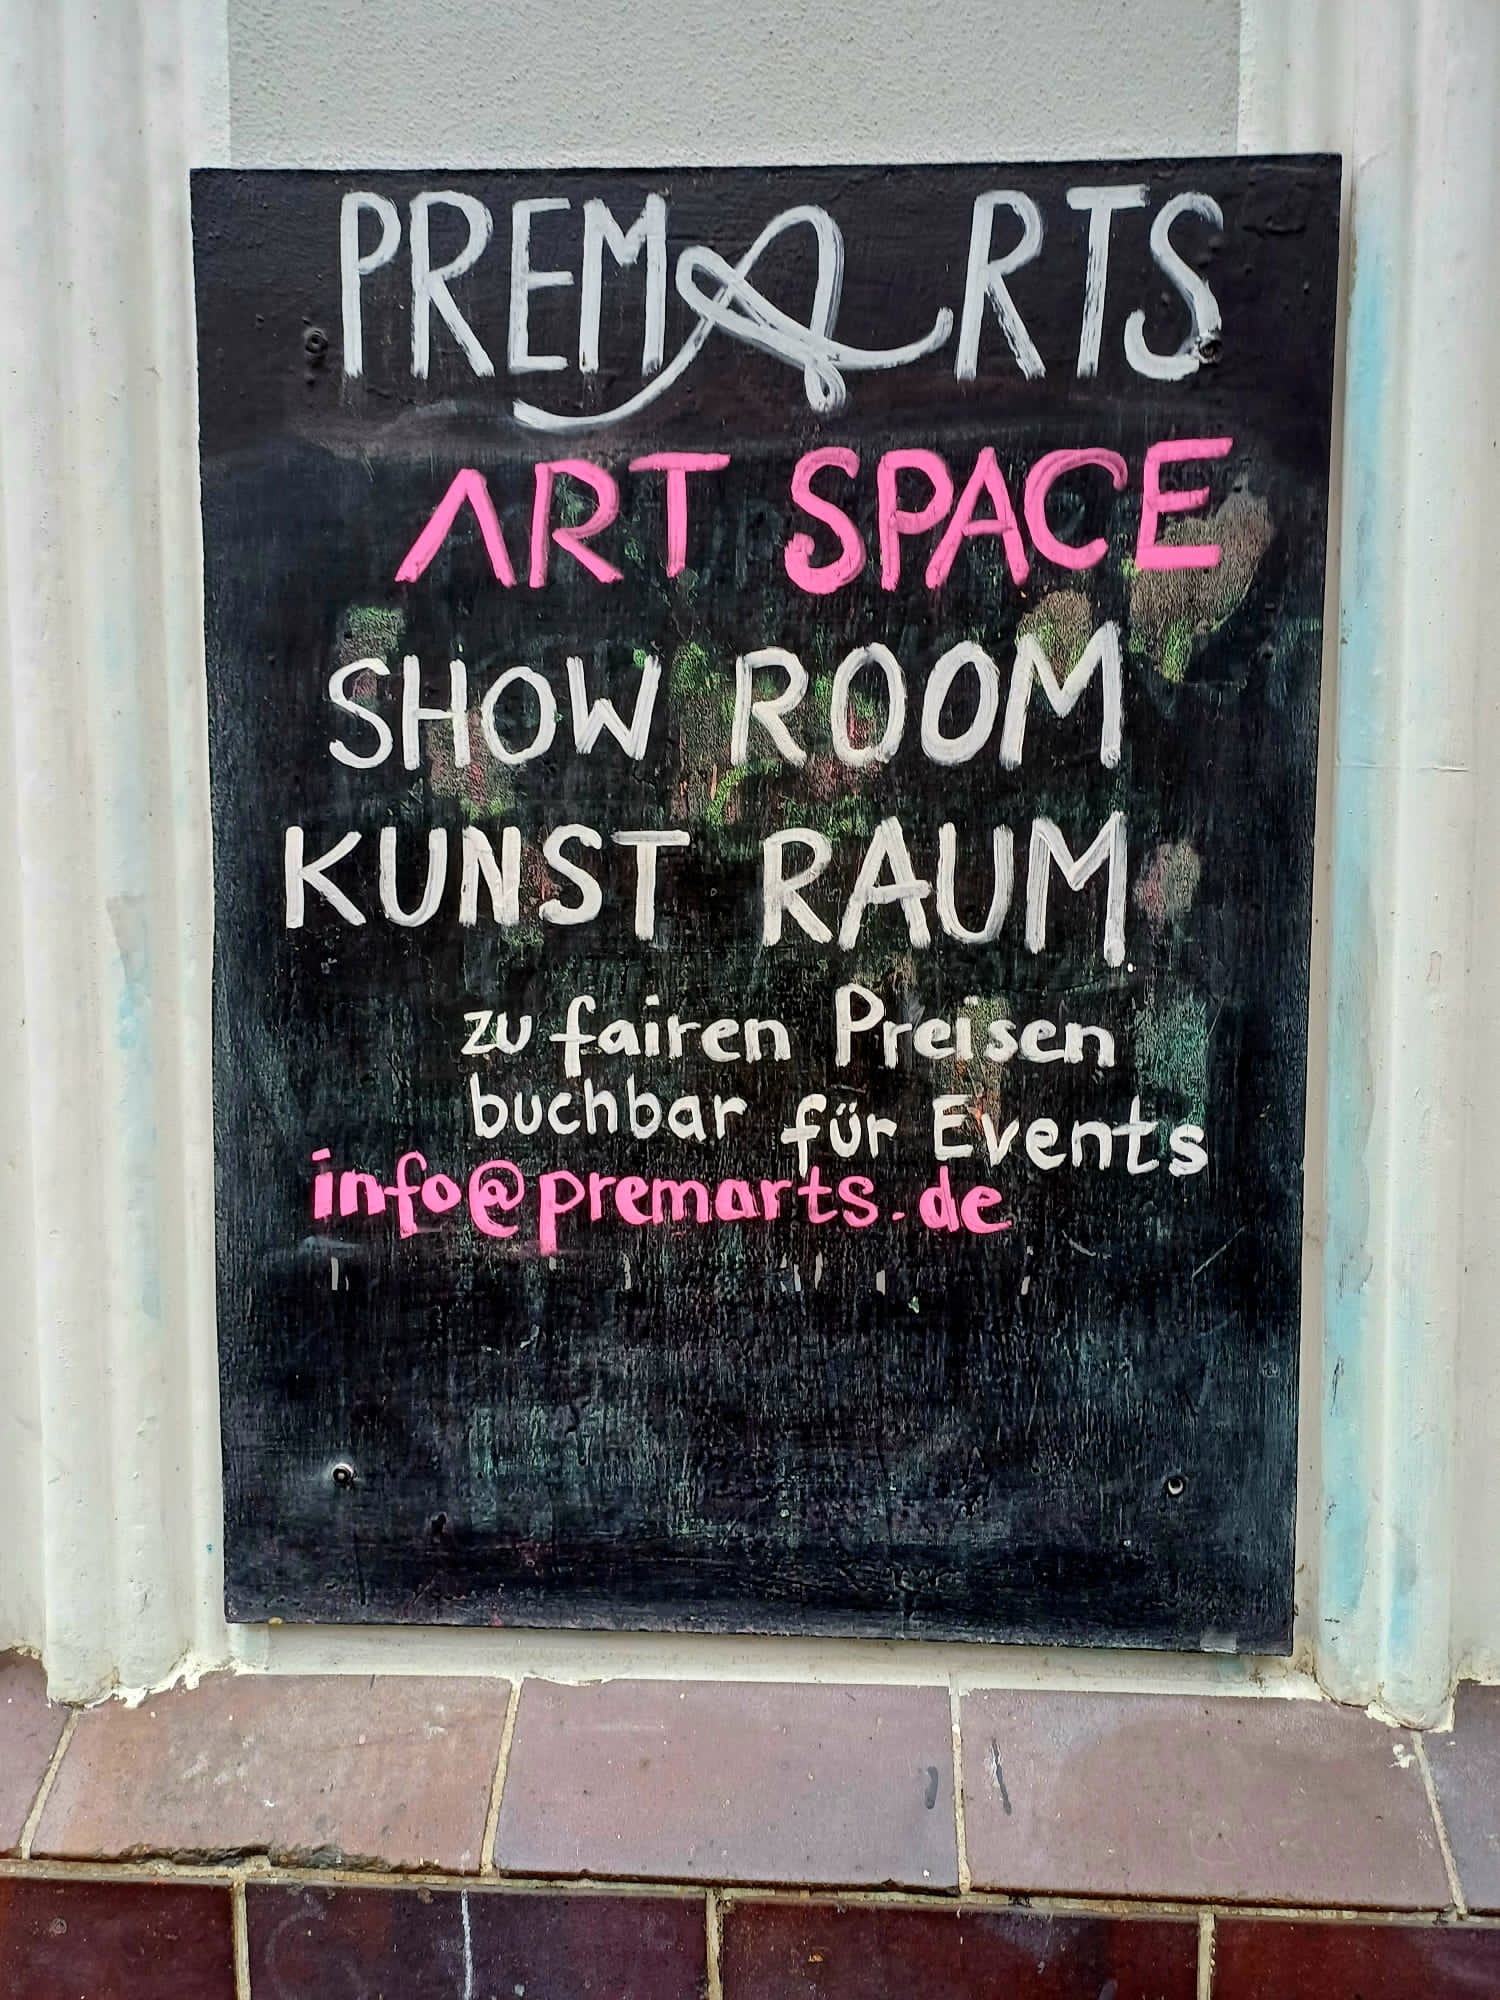 PREMARTS
ART SPACE
SHOW ROOM
KUNST RAUM
zu fairen Preisen
buchbar für Events
info@premarts.de